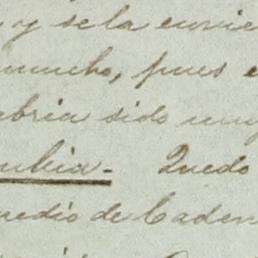 y se la envie
mucho, pues e
ebria sido muy
mbia. Quedo
medio de Caden